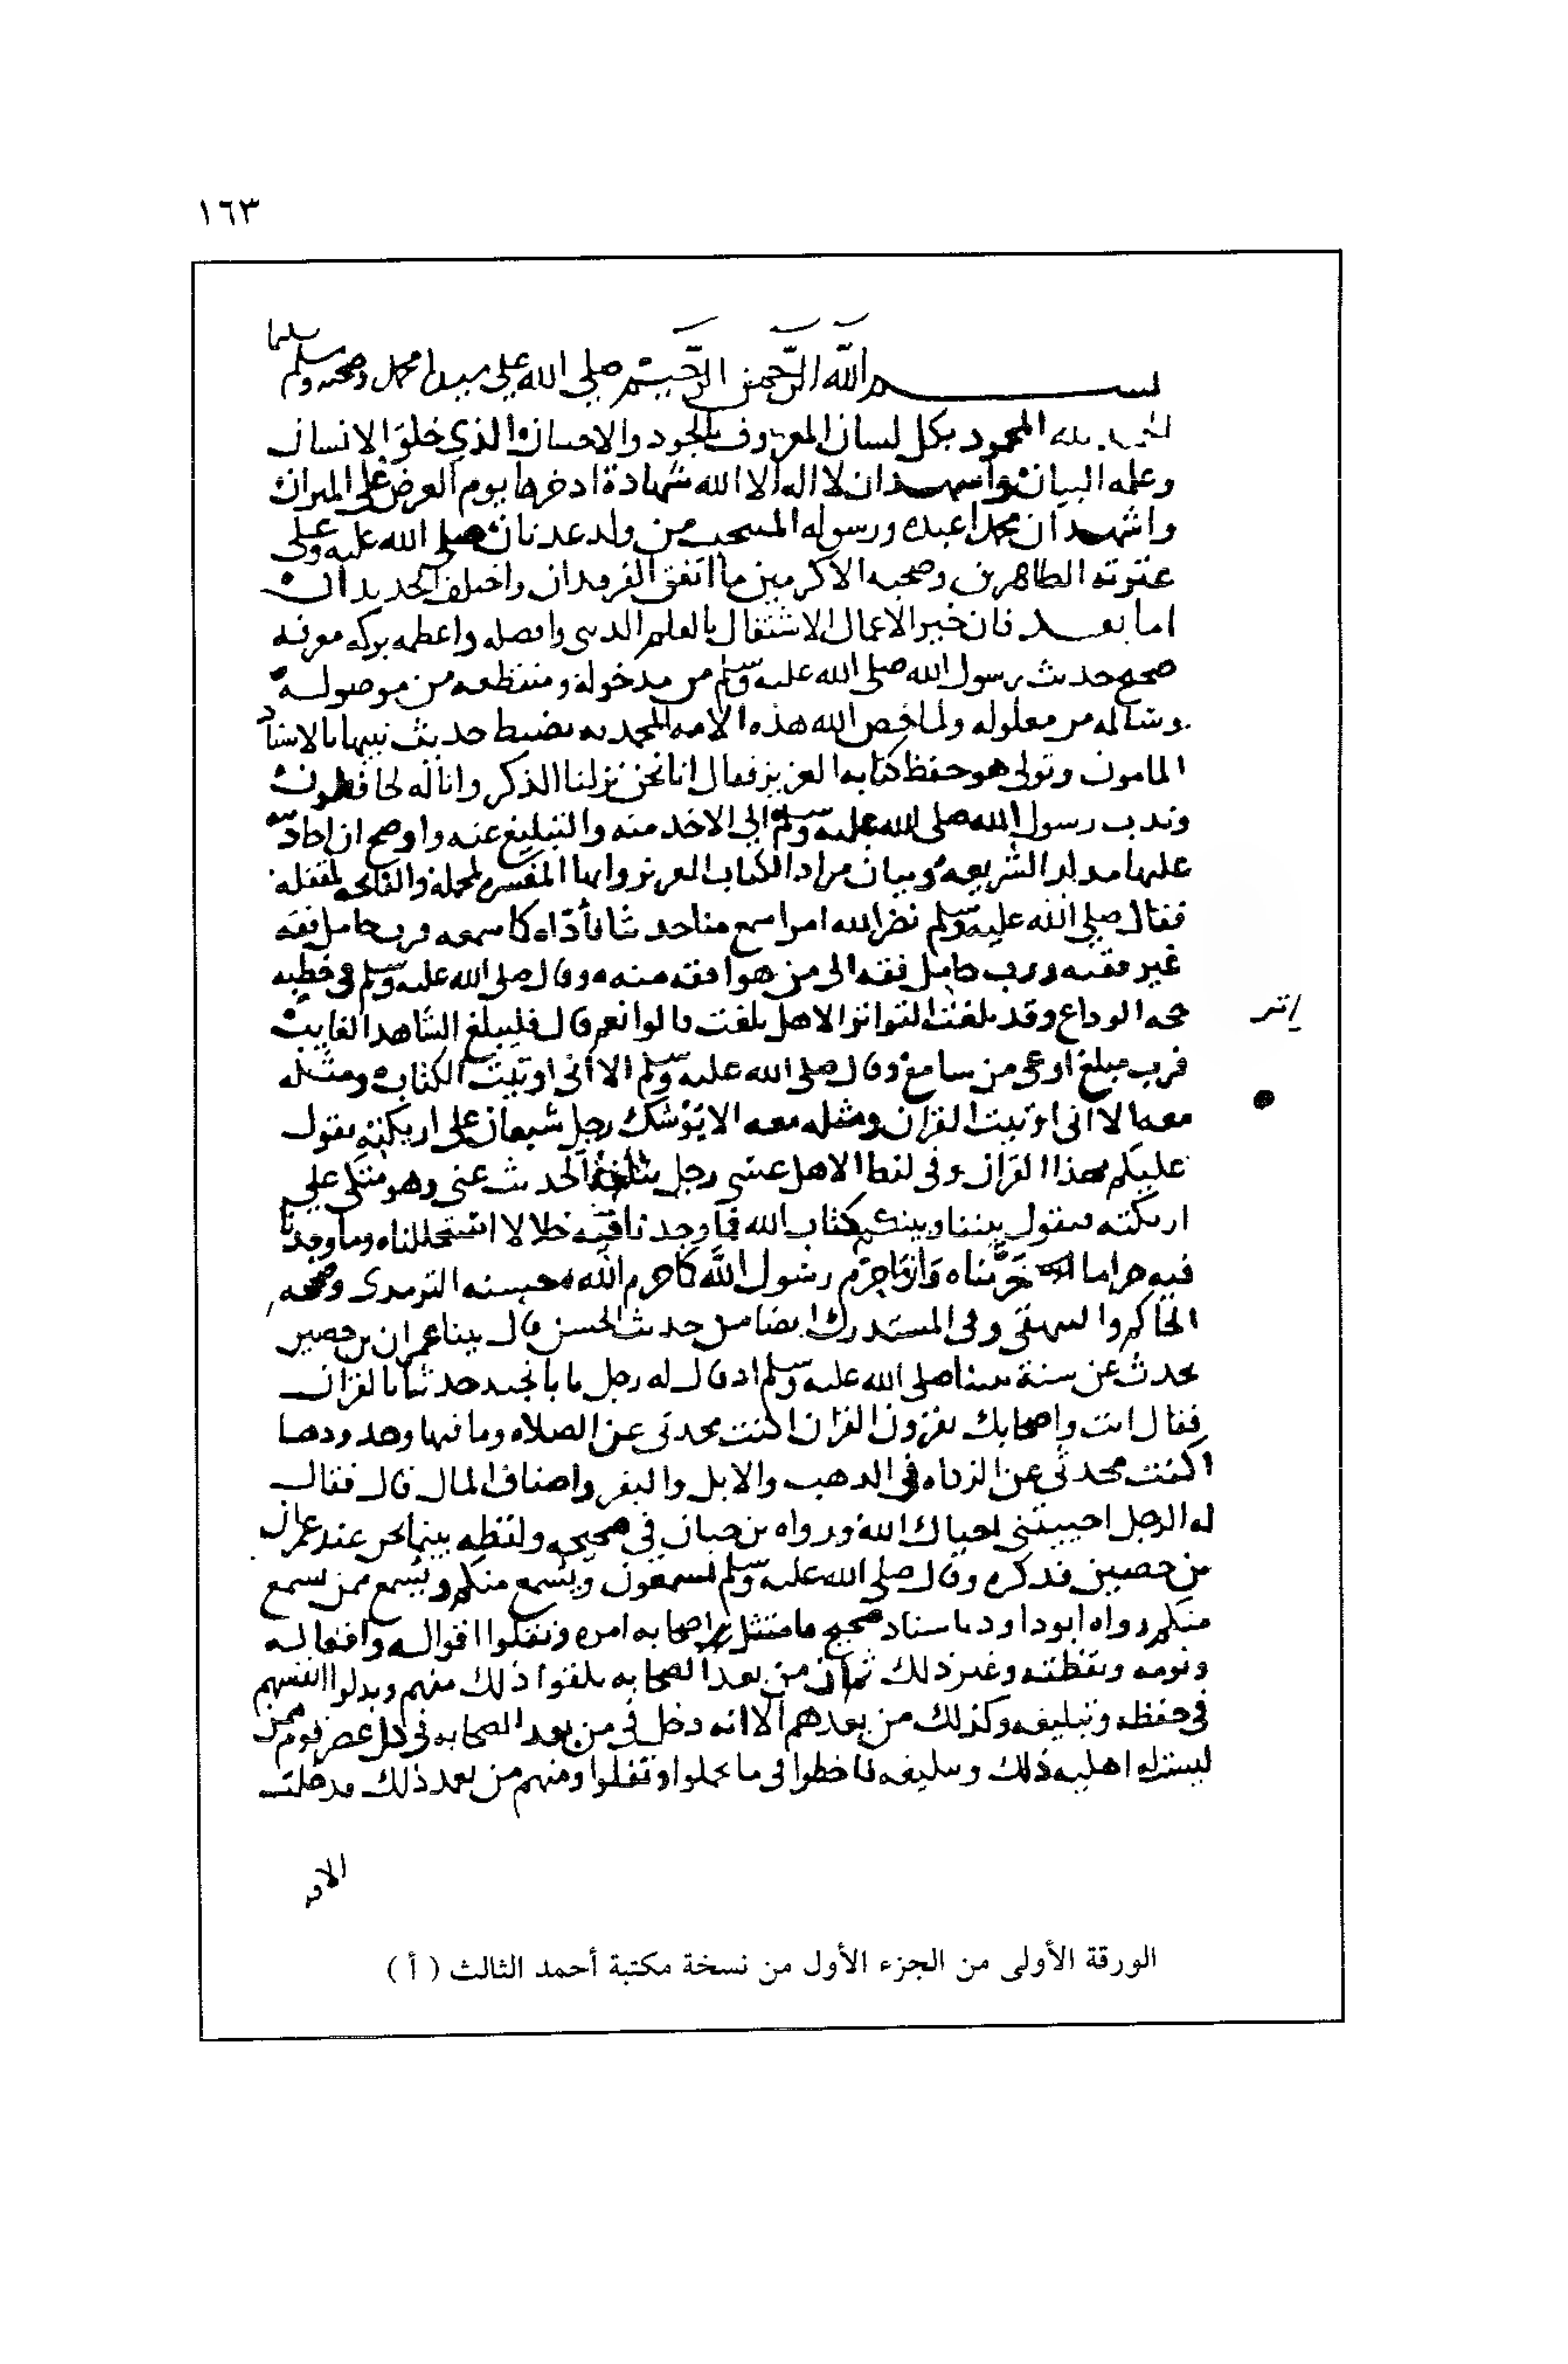 ١٦٣
بســـم الله الرَّحمن الرَّحيم صلى الله على سيدنا محمد وصحبه وسلم
الحمد لله المحمود بكل لسان المعروف بالجود والاحسان الذي خلق الانسان
وعلمه البيان واشهد ان لا اله الا الله شهادة ادخرها يوم العرض على الميزان
واشهد ان محمدا عبده ورسوله المنتخب من ولد عدنان صلى الله عليه وعلى
عترته الطاهرين وصحبه الاكرمين ما اتفق الفرقدان واختلف الجديدان
اما بعد فان خير الاعمال الاشتغال بالعلم الديني وافضله واعظمه بركه معرفه
صحيح حديث رسول الله صلى الله عليه وسلم من مدخوله ومنقطعه من موصوله
وسالمه من معلوله ولما خص الله هذه الامه المحمديه بضبط حديث نبيها بالاسناد
المامون وتولى هو حفظ كتابه العزيز فقال انا نحن نزلنا الذكر وانا له لحافظون
وندب رسول الله صلى الله عليه وسلم الي الاخذ منه والتبليغ عنه واوضح ان احاديثه
عليها مدار الشريعه وبيان مراد الكتاب العزيز وانها المفسره لمجمله والفاتحه لمقفله
فقال صلى الله عليه وسلم نضر الله امرا سمع منا حديثا فأدّاه كما سمعه فرب حامل فقه
غير فقيه ورب حامل فقه الى من هو افقه منه وقال صلى الله عليه وسلم في خطبه
حجه الوداع وقد بلغت التواتر الا هل بلغت قالوا نعم قال فليبلغ الشاهد الغايب
اتر
فرب مبلغ اوعى من سامع وقال صلى الله عليه وسلم الا اني اوتيت الكتاب ومثله
معه الا اني اوتيت القران ومثله معه الا يوشك رجل شبعان على اريكته يقول
عليكم بهذا القران وفي لفظ الا هل عسى رجل يبلغه الحديث عني وهو متكى علي
اريكته فيقول بيننا وبينكم كتاب الله فما وجدنا فيه حلالا استحللناه وما وجدنا
فيه حراما حَرَّمناه وانما حرّم رسول الله كما حرم الله حسنه الترمذى وصححه
الحاكم والبيهقى وفى المستدرك ايضا من حديث الحسن قال بينا عمران بن حصين
يحدث عن سنة نبينا صلى الله عليه وسلم اذ قال له رجل يا با نجيد حدثنا بالقران
فقال انت واصحابك تقرون القران اكنت محدثى عن الصلاه وما فيها وحدودها
اكنت محدثى عن الزكاه في الذهب والابل والبقر واصناف المال قال فقال
له الرجل احييتني احياك الله ورواه بن حبان في صحيحه ولفظه بينما نحن عند عمران
بن حصين فذكره وقال صلى الله عليه وسلم تسمعون ويسمع منكم ويسمع ممن يسمع
منكم رواه ابو داود باسناد صحيح فامتثل اصحابه امره ونقلوا اقواله وافعاله
ونومه ويقظته وغير ذلك ثم ان من بعد الصحابه تلقوا ذلك منهم وبذلوا انفسهم
في حفظه وتبليغه وكذلك من بعدهم الا انه دخل في من بعد الصحابه في كل عصر قوم ممن
ليست له اهليه ذلك وتبليغه فاخطوا فى ما تحملوا ونقلوا ومنهم من بعد ذلك
الورقة الأولى من الجزء الأول من نسخة مكتبة أحمد الثالث ( أ )